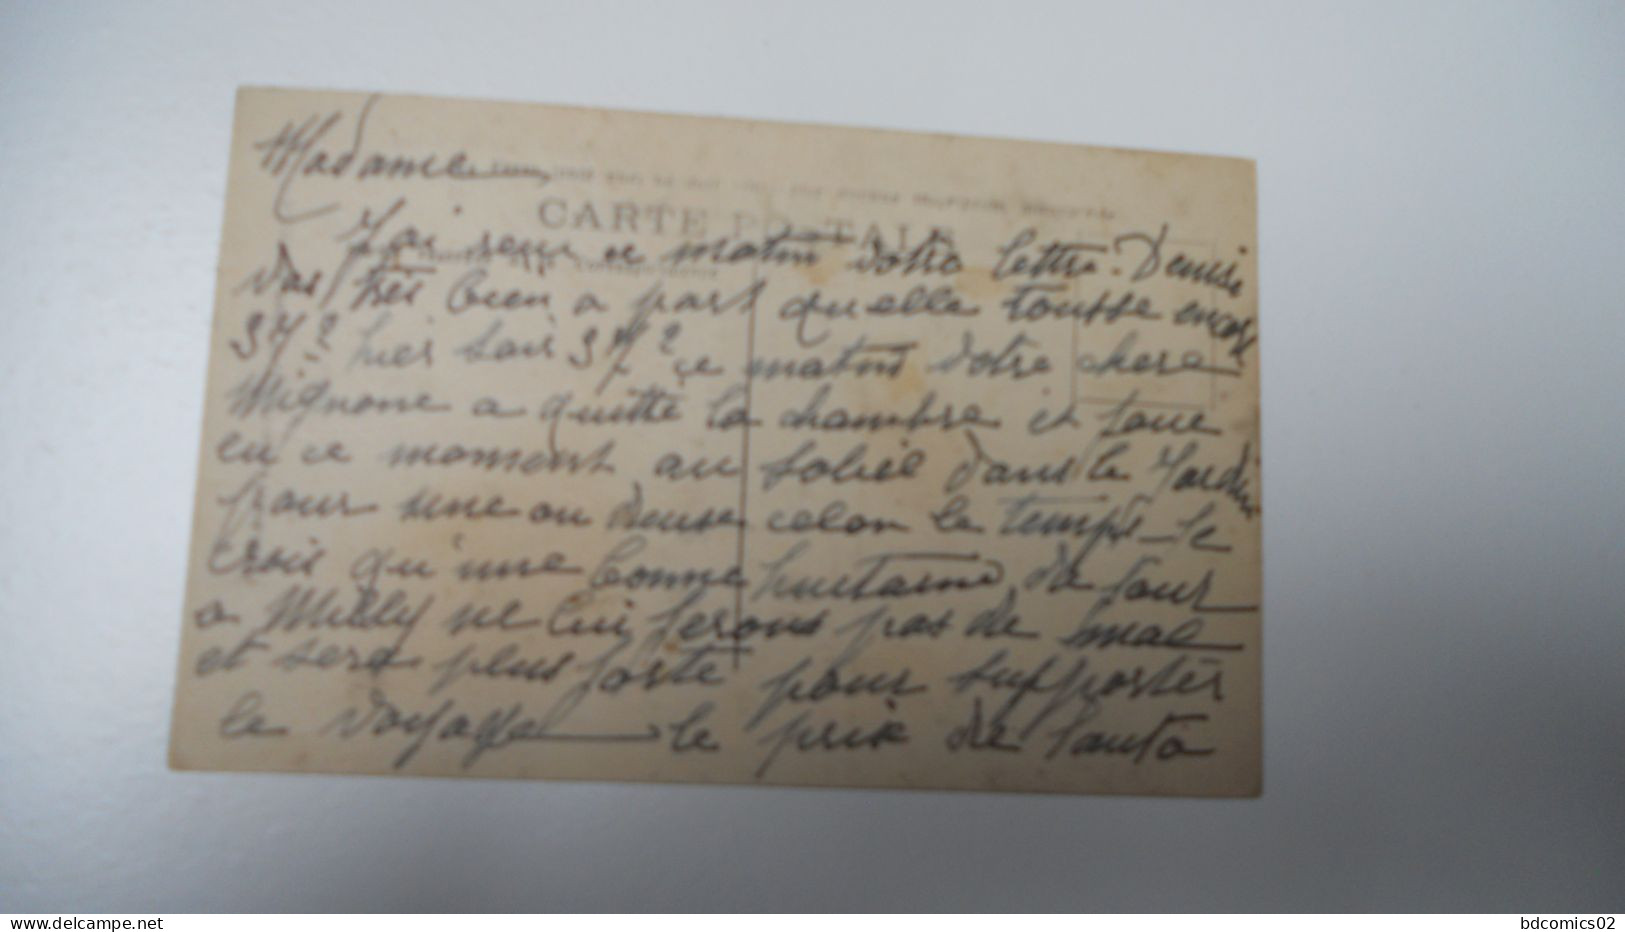 Madame
CARTE POSTALE
J'ai reçu ce matin votre lettre. Denise
vas très bien a part quelle tousse encore
37,2 hier soir 37,2 ce matin votre chere
Mignone a quitté la chambre et joue
en ce moment au soleil dans le Jardin
pour une ou deuse celon le temps - Je
crois qu'une bonne huitaine de jour
a Milly ne lui ferons pas de mal
et sera plus forte pour supporter
le voyage le prix de l'auto
www.delcampe.net
bdcomics02